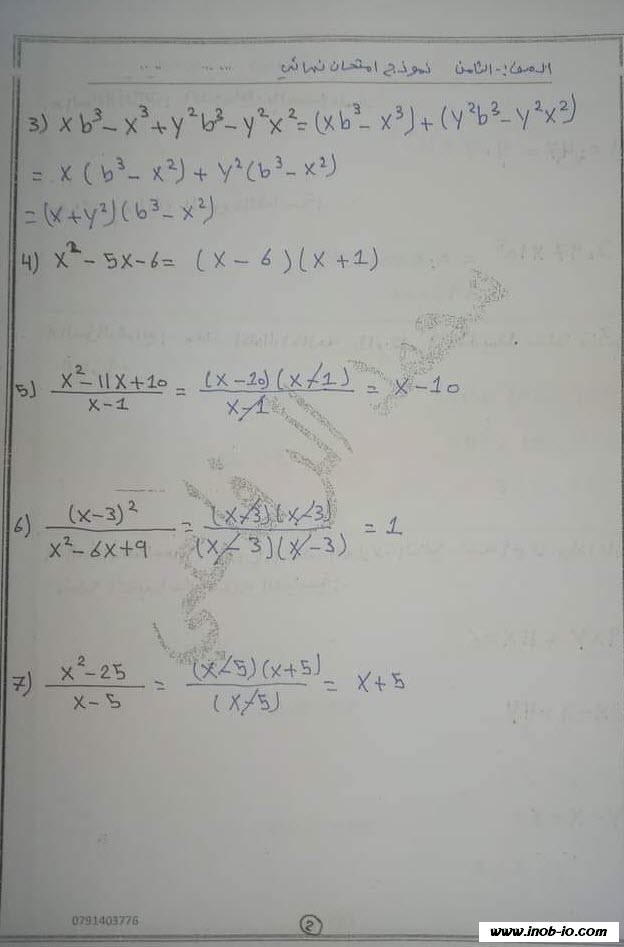 الصف:- الثامن نموذج امتحان نهائي
3) xb³ - x³ + y²b³ - y²x² = (xb³ - x³) + (y²b³ - y²x²)
= x(b³ - x²) + y²(b³ - x²)
= (x + y²)(b³ - x²)
4) x² - 5x - 6 = (x - 6)(x + 1)
5) (x² - 11x + 10)/(x - 1) = (x - 10)(x - 1)/(x - 1) = x - 10
6) (x - 3)²/(x² - 6x + 9) = (x - 3)(x - 3)/(x - 3)(x - 3) = 1
7) (x² - 25)/(x - 5) = (x - 5)(x + 5)/(x - 5) = x + 5
0791403776
2
www.inob-io.com